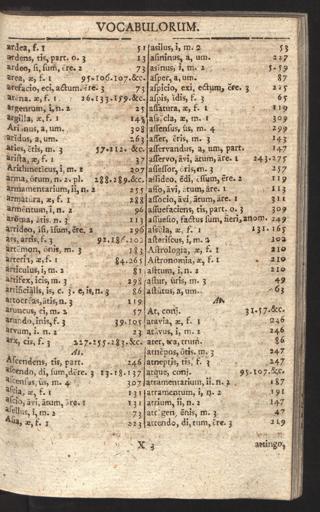 VOCABULORUM.
ardea, f. 1 51
ardens, tis, part. o. 3 13
ardeo, si, sum, ēre. 2 73
area, æ, f. 1 95.106.107.&c.
arefacio, eci, actum. ĕre. 3 75
arena, æ, f. 1 26.133.159.&c.
argentum, i, n. 2 25
argilla, æ, f. 1
Arianus, a, um. 308
aridus, a, um. 263
aries, ĕtis, m. 3 57.212. &c.
arista, æ, f. 1 37
Arithmeticus, i, m. 2 207
arma, ōrum, n. 2. pl. 288.289.&c.
armamentarium, ii, n. 2 255
armatura, æ, f. 1 288
armentum, i, n. 2 96
arōma, ătis. n. 3 113
arrideo, isi, isum, ēre. 2 296
ars, artis, f. 3 92.186.202
artĕmon, ōnis, m. 3 183
arteria, æ, f. 1 84.265
articulus, i, m. 2 81
artifex, icis, m. 3 298
artificiālis, is, c. 3. e, is, n. 3 86
artocreas, ătis, n. 3 119
aruncus, ci, m. 2 57
arundo, inis, f. 3 39.105
arvum, i. n. 2 23
arx, cis, f. 3 227.255.283.&c.
As.
Ascendens, tis, part. 246
ascendo, di, sum, dĕre. 3 13.18.137
ascensus, ûs, m. 4 307
ascia, æ, f. 1 131
ascio, āvi, ātum, āre. 1 131
asellus, i, m. 2 73
Asia, æ, f. 1 223
asilus, i, m. 2 53
asininus, a, um. 227
asinus, i, m. 2 5.59
asper, a, um. 87
aspicio, exi, ectum, ĕre. 3 225
aspis, idis, f. 3 65
assatura, æ, f. 1 119
assecla, æ, m. 1 309
assensus, ûs, m. 4 299
asser, ĕris, m. 3 143
asservandus, a, um, part. 147
asservo, āvi, ātum, āre. 1 243.275
assessor, ōris, m. 3 257
assideo, ēdi, essum, ēre. 2 119
asso, āvi, ātum, āre. 1 113
associo, āvi, ātum, āre. 1 311
assuefaciens, tis, part. o. 3 309
assuefio, factus sum, fieri, anom. 249
assula, æ, f. 1 131.165
asteriscus, i, m. 2 202
Astrologia, æ, f. 1 210
Astronomia, æ, f. 1 210
astrum, i, n. 2 210
astur, ŭris, m. 3 49
astutus, a, um. 63
At.
At, conj. 31.57.&c.
atavia, æ, f. 1 246
atavus, i, m. 2 246
ater, tra, trum. 86
atnepos, ōtis. m. 3 247
atneptis, tis, f. 3 247
atque, conj. 95.107.&c.
atramentarium, ii. n. 2 187
atramentum, i, n. 2 191
atrium, ii, n. 2 147
attagen, ēnis, m. 3 47
attendo, di, tum, ĕre. 3 219
X 3 attingo,